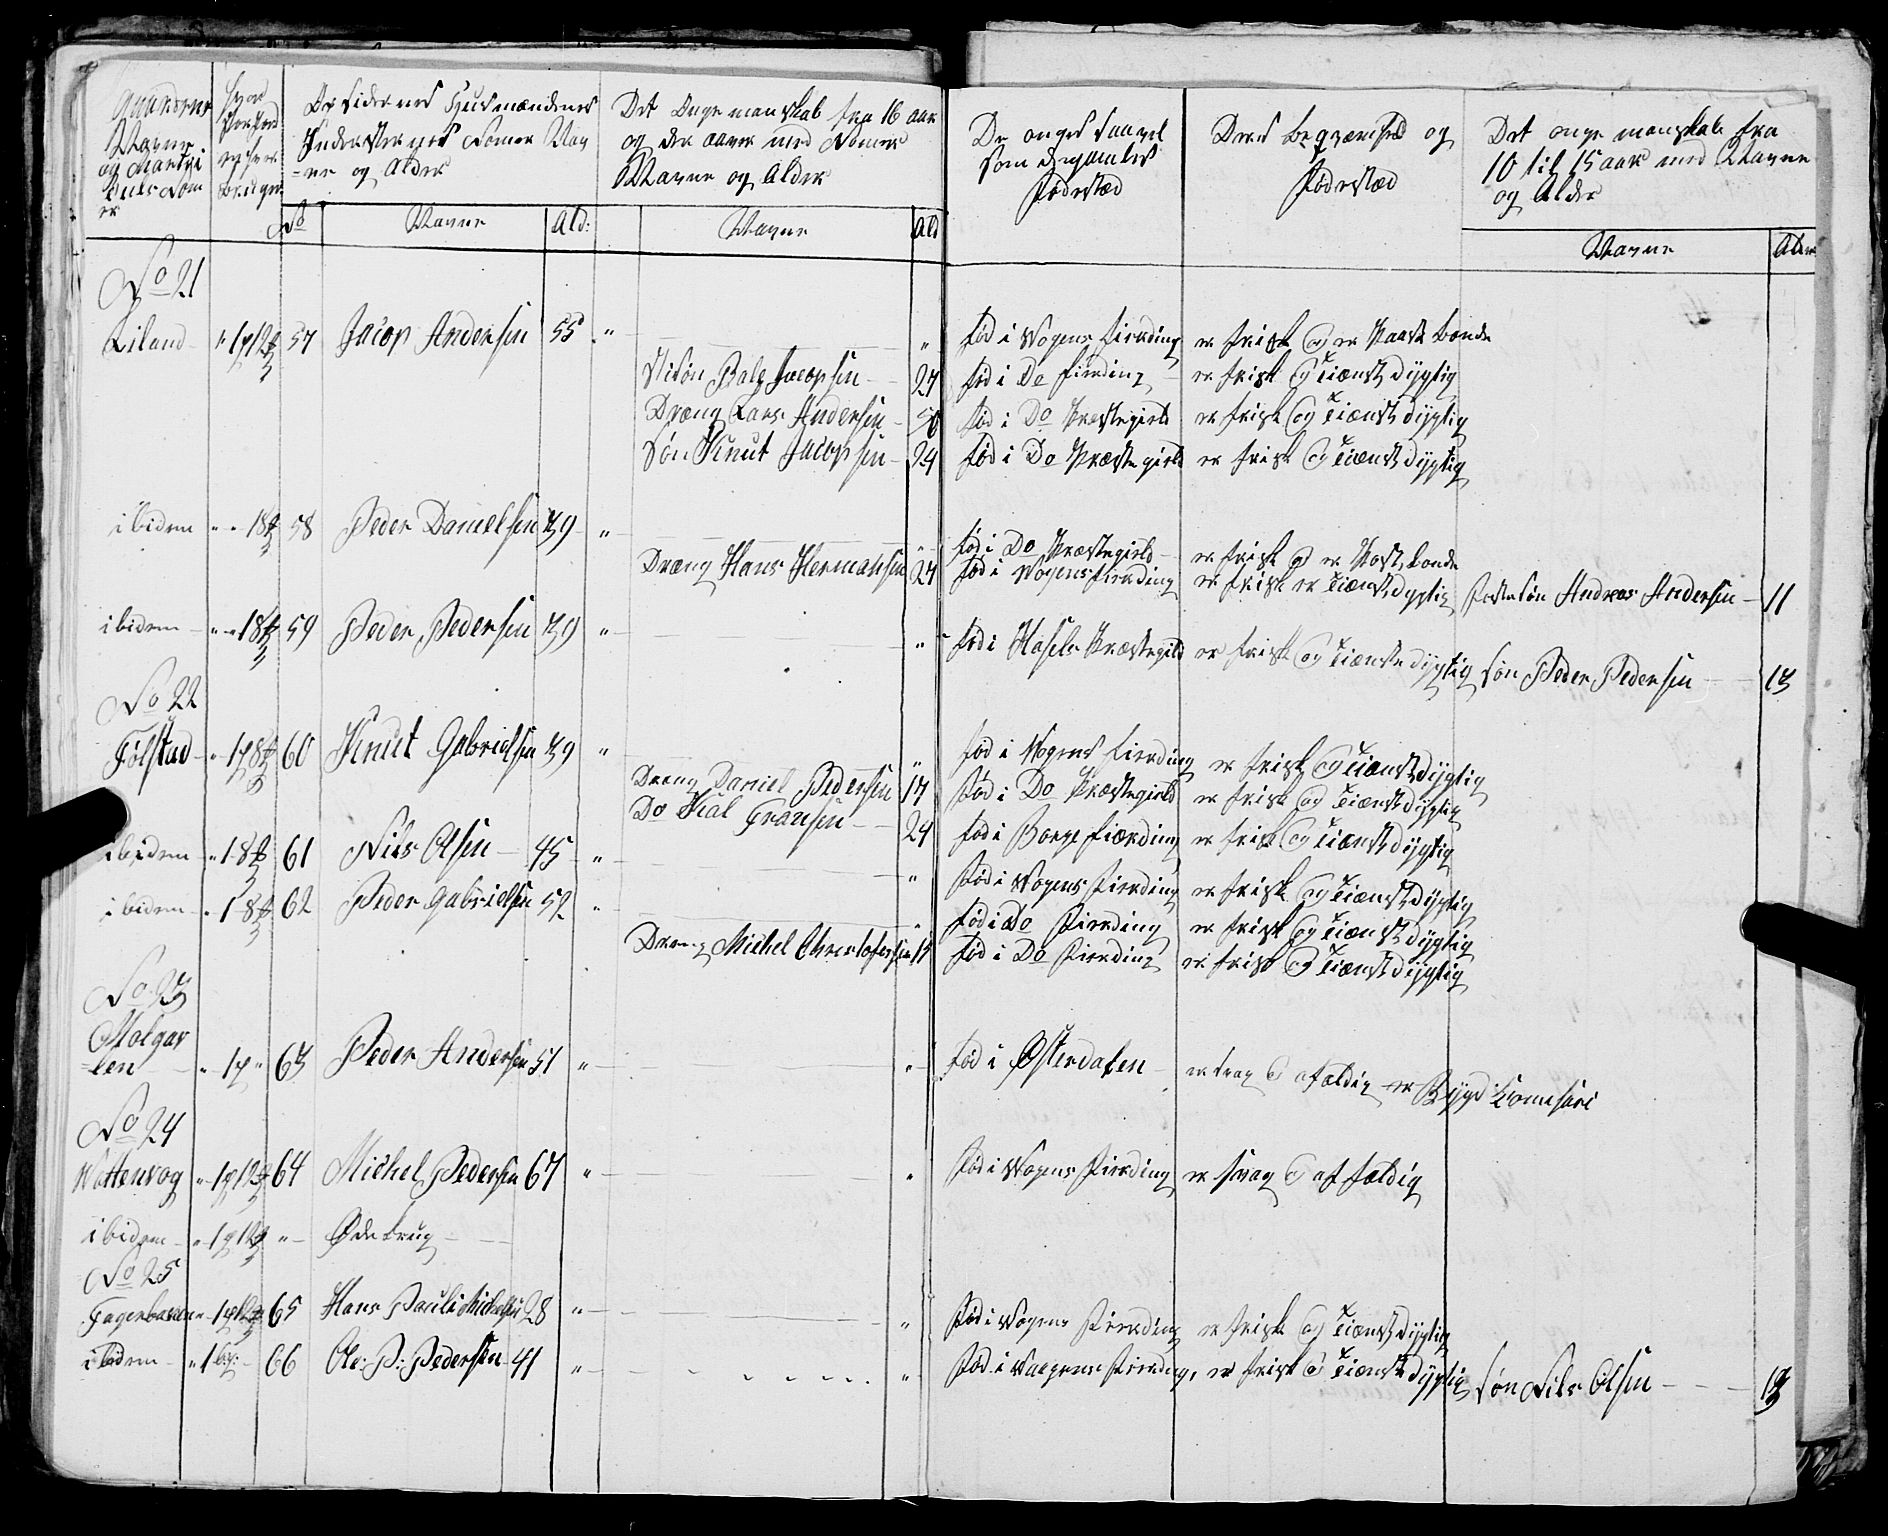 Gaardenes Navne og Matriculs Nomer
Hvor Stor Jord enhver bruger
Opsidernes Husmændenes Inderster med Nomer Navne og Alder
Det Unge manskab fra 16 aar og der over med Nomer Navne og Alder
De unges saavel som de gamles Fødestæd
Deres beqvæmhed og Fødestæd
Det unge manskab fra 10 til 15 aar med Navne og Alder
No Navne Ald: Navne Ald Navne Alder
No 21
Liland 57 Jacop Andersen 55 fød i Vogens Fierding er frisk og er Baastbonde
Stisøn Balz Jacopsen 27 fød i Do fierding er frisk og Tienstdygtig
Dræng Lars Andersen 50 fød i Do Præstegield er frisk og Tienstdygtig
Søn Knut Jacopsen 24 fød i Do Præstegield er frisk og Tienstdygtig
ibidem 58 Peder Danielsen 39 fød i Do Præstegield er frisk og er
Dræng Hans Hermansen 27 fød i Vogens Fierding er frisk er Tienstdygtig Fostersøn Andreas Andersen 11
ibidem 59 Peder Pedersen 39 fød i Hasels Præstegield er frisk og Tienstedygtig Søn Peder Pedersen 13
No 22
Følstad 60 Knut Gabrielsen 39 fød i Vogens Fierding er frisk og Tienstdygtig
Dræng Daniel Pedersen 17 fød i Do Præstegield er frisk og Tienstdygtig
Do Kial Fransen 24 fød i Borge Fiærding er frisk og Tienstdygtig
ibidem 61 Nils Olsen 45 fød i Vogens Fierding er frisk og Tienstdygtig
ibidem 62 Peder Gabrielsen 52 fød i Do Fierding er frisk og Tienstdygtig
Dreng Michel Christofersen fød i Do Fierding er frisk og Tienstdygtig
No 23
Molgav
len 63 Peder Andersen 51 fød i Østerdalen er svag og afældig er Bygd Comesari
No 24
Wottervog 64 Michel Pedersen 67 fød i Vogens Fierding er svag og affældig
ibidem Øde brug
No 25
65 Hans Paul Michelsen 28 fød i Vogens Fierding er frisk og Tienstdygtig
ibidem 66 Ole: P: Pedersen 41 fød i Vaagens Fierding, er frisk og Tienstedygtig Søn Nils Olsen